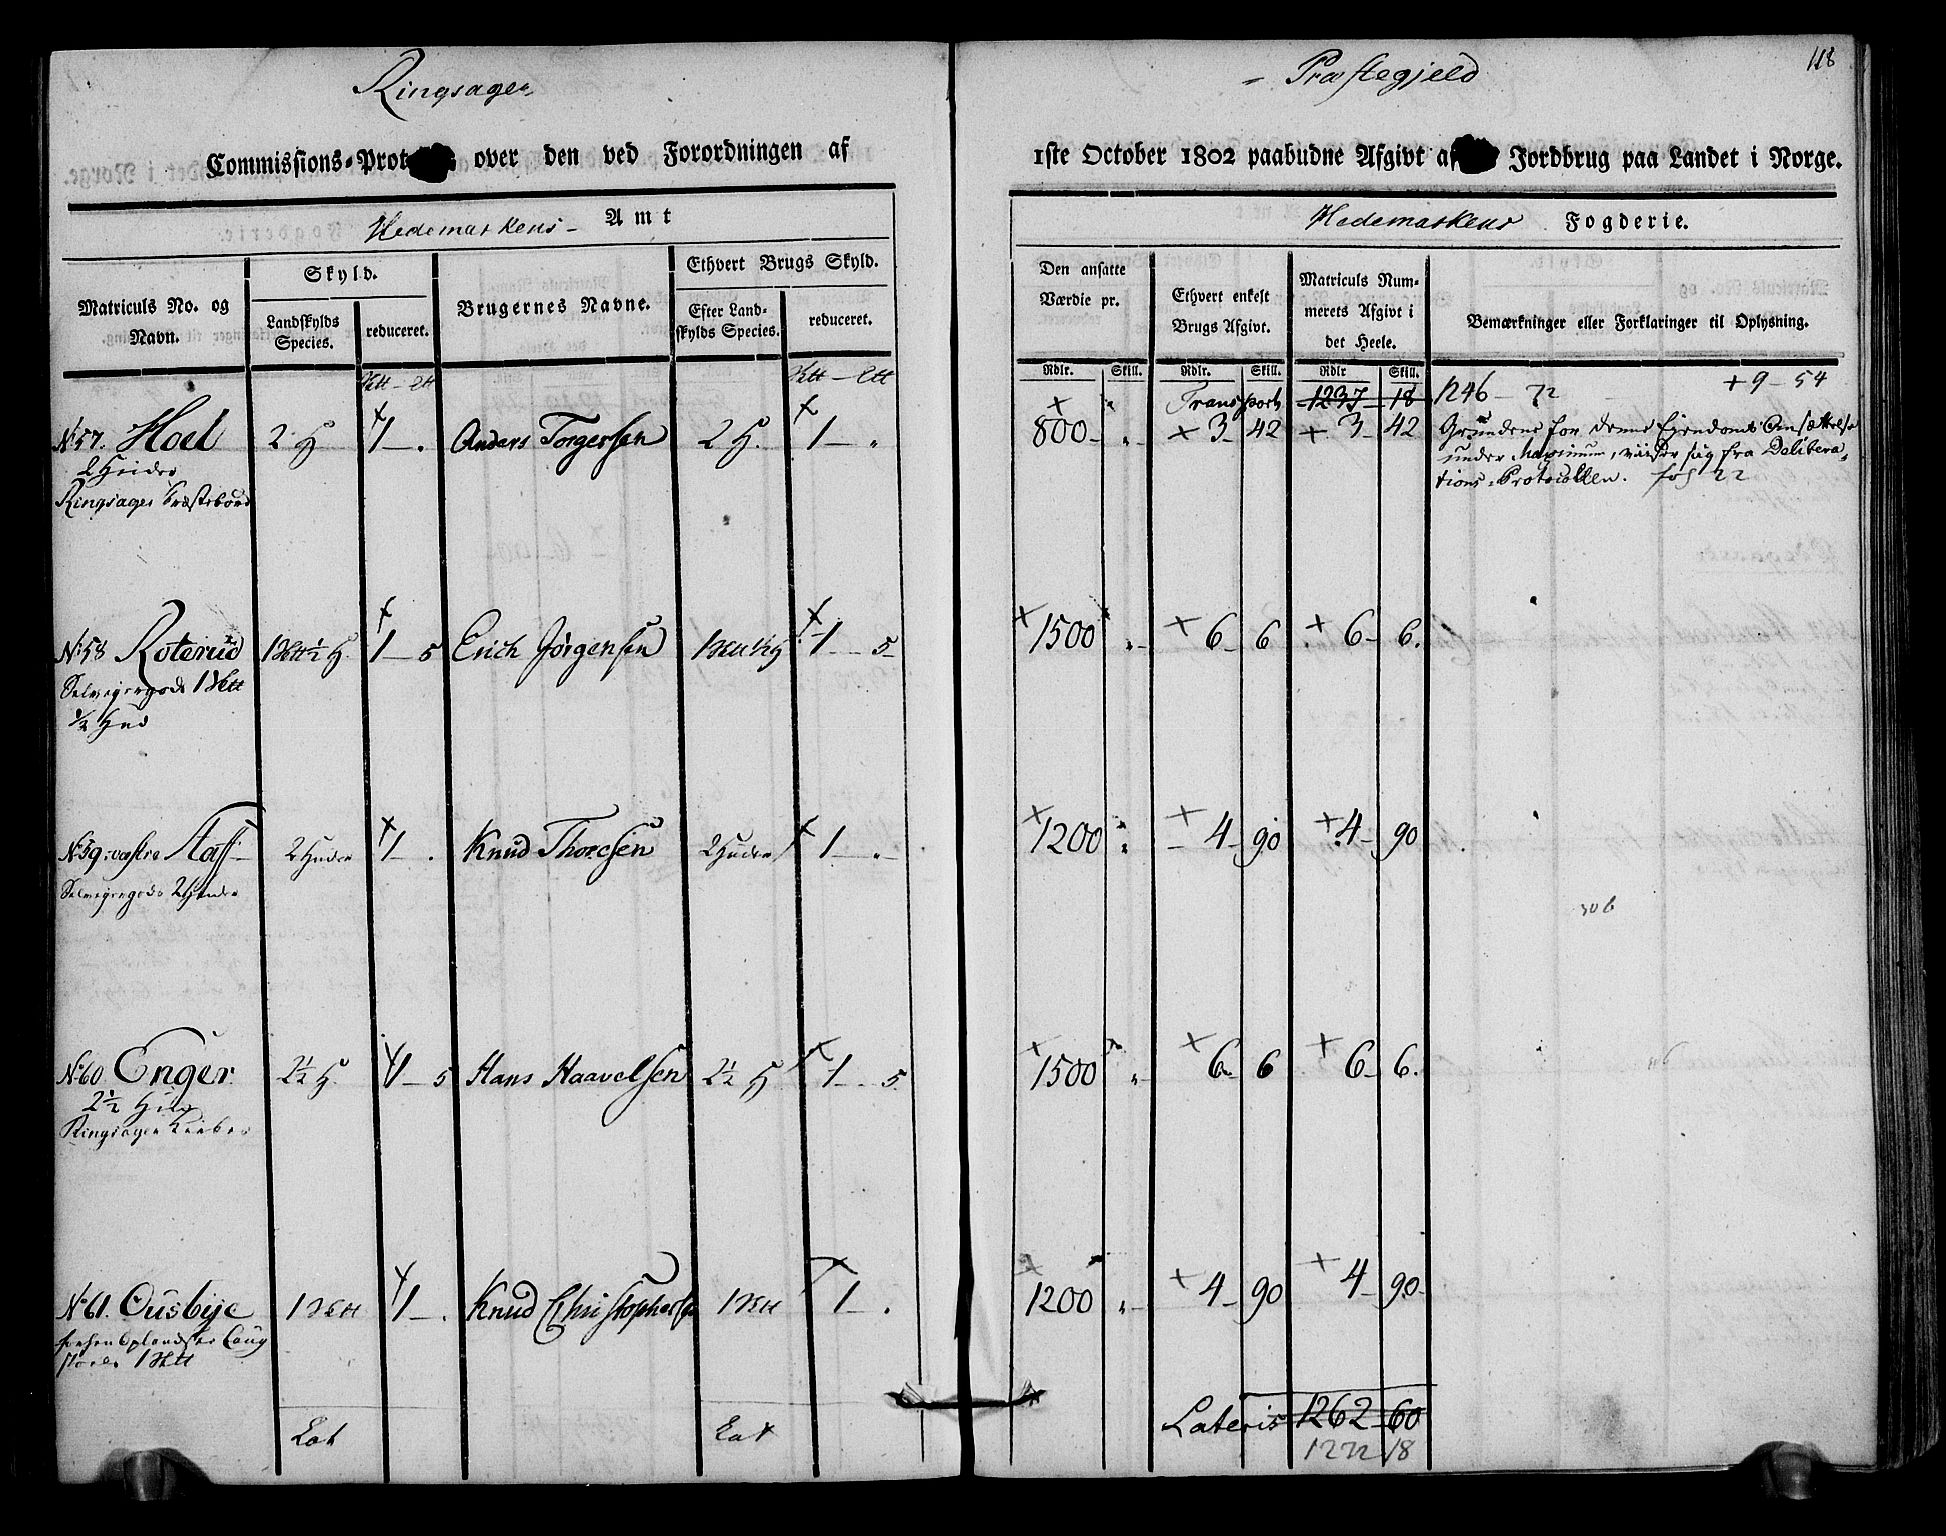 Ringsager
Commissions-Prot over den ved Forordningen af
Hedemarkens Amt
Matriculs No. og Navn.
Skyld.
Landskylds Species.
reduceret.
Brugernes Navne.
Ethvert Brugs Skyld.
Efter Landskylds Species.
reduceret.
No 57. Hoel 2 H 1 — . Anders Torgersen 2 H. 1 — "
2 Huder
Ringsager
No 58 Roterud ½ H. 1 — 5 Erich Jörgensen 1 — 5
Selveiergods
½ Hud
No 59. væstre Staff 2 Huder 1 — . Knud Thoresen 2 Huder 1 — "
Selveiergods 2 Huder
No 60 Enger 2½ H. 1 — 5 Hans Haavelsen 2½ H 1 — 5
2½ Hud
Ringsager
No 61. Ousbye 1 1 — . Knud Christophersen 1 1 — .
Lat Lat
Præstegjeld
118
1ste October 1802 paabudne Afgivt af Jordbrug paa Landet i Norge.
Hedemarkens Fogderie.
Den ansatte Værdie pr.
Ethvert enkelt Brugs Afgivt.
Matriculs Nummerets Afgivt i det Heele.
Bemærkninger eller Forklaringer til Oplysning.
Rdlr. Skill. Rdlr. Skill. Rdlr Skill.
Transport 1237 18 1246 — 72 + 9 — 54
800 " + 3 — 42 + 3 — 42 Grundene for denne Eiendoms Ansættelse
under Maximum, viiser sig fra Delibera-
tions-Protocollen. fol 22
+ 1500 " + 6 6 + 6 — 6.
+ 1200 " + 4 — 90 + 4 — 90
306
+ 1500 " + 6 6 + 6 — 6.
1200 " + 4 — 90 + 4 — 90
Lateris 1262 — 60
1272 18